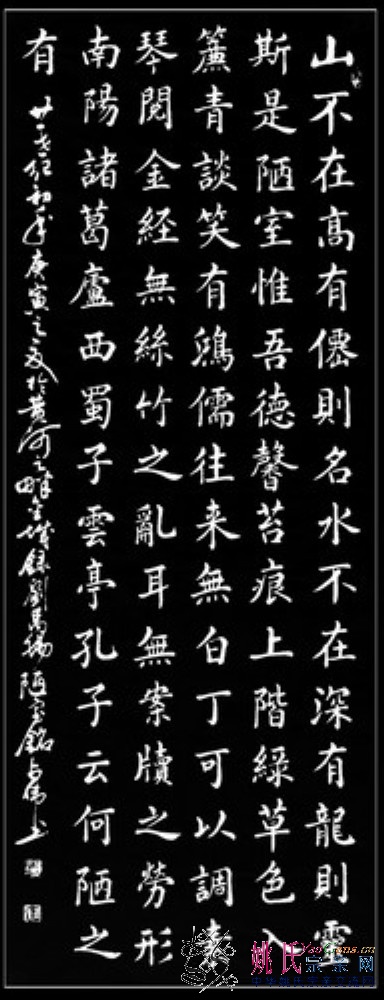 山不在高有僊則名水不在深有龍則靈
斯是陋室惟吾德馨苔痕上階綠草色入
簾青談笑有鴻儒往来無白丁可以調素
琴閱金経無絲竹之亂耳無案牘之勞形
南陽諸葛廬西蜀子雲亭孔子云何陋之
有
廿一世纪初年庚寅之夏於黄河之畔金城錄劉禹錫陋室銘
姚氏宗亲网